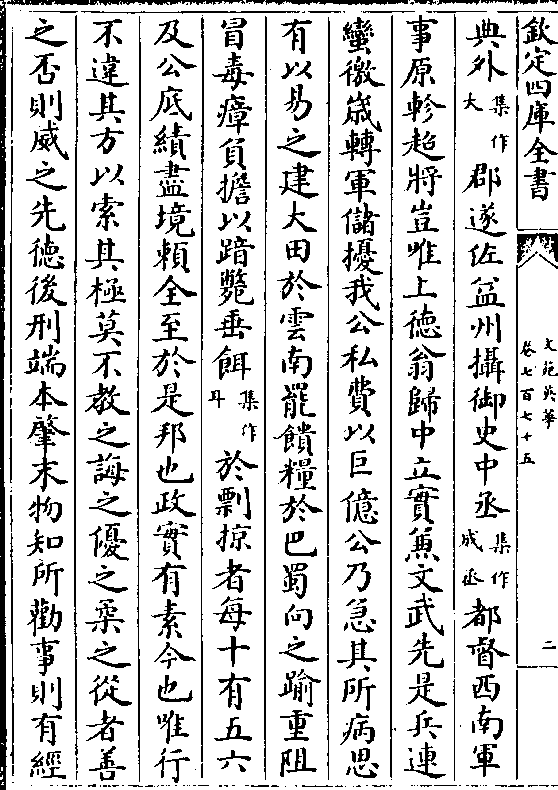 欽定四庫全書
文苑英華
卷七百七十五
二
典外集作大郡遂佐益州攝御史中丞集作成丞都督西南軍
事原軫超將豈唯上德翁歸中立實兼文武先是兵連
蠻徼歲轉軍儲擾我公私費以巨億公乃急其所病思
有以易之建大田於雲南罷饋糧於巴蜀向之踰重阻
冒毒瘴負擔以踣斃垂餌集作耳於剽掠者每十有五六
及公底績盡境頼全至於是邦也政實有素今也唯行
不違其方以索其極莫不教之誨之優之柔之從者善
之否則威之先徳後刑端本肇末物知所勸事則有經